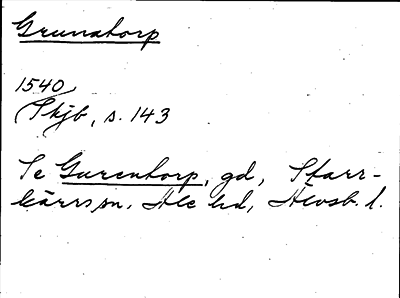 Grunatorp
1540
Skjb, s. 143
Se Gurentorp, gd, Starr-
kärrs sn. Ale hd, Älvsb. l.